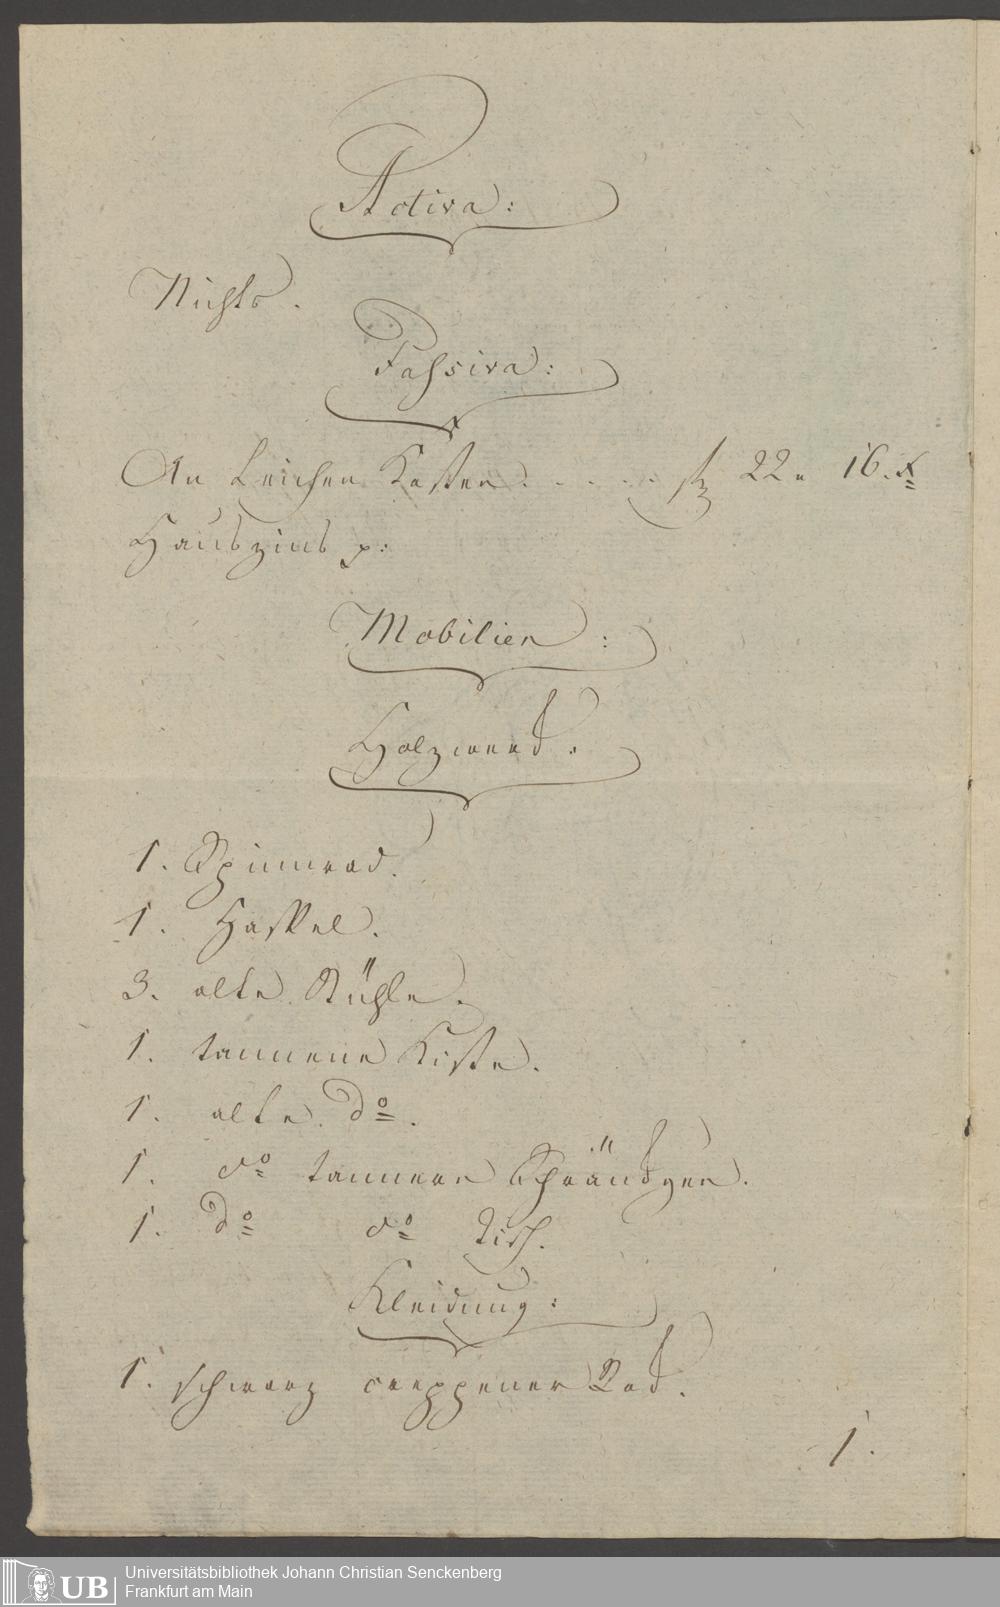 Activa:
Nichts.
Passiva:
An Leichen Kosten . . . . . f 22 " 16. x
Hauszins p:
Mobilien:
Holzwerck.
1. Spinnrad.
1. Haspel.
3. alte Stühle.
1. tannene Kiste.
1. alte do.
1. do tannene Schränckgen.
1. do do Tisch.
Kleidung:
1. schwarz creppener Rock.
1.
UB
Universitätsbibliothek Johann Christian Senckenberg
Frankfurt am Main